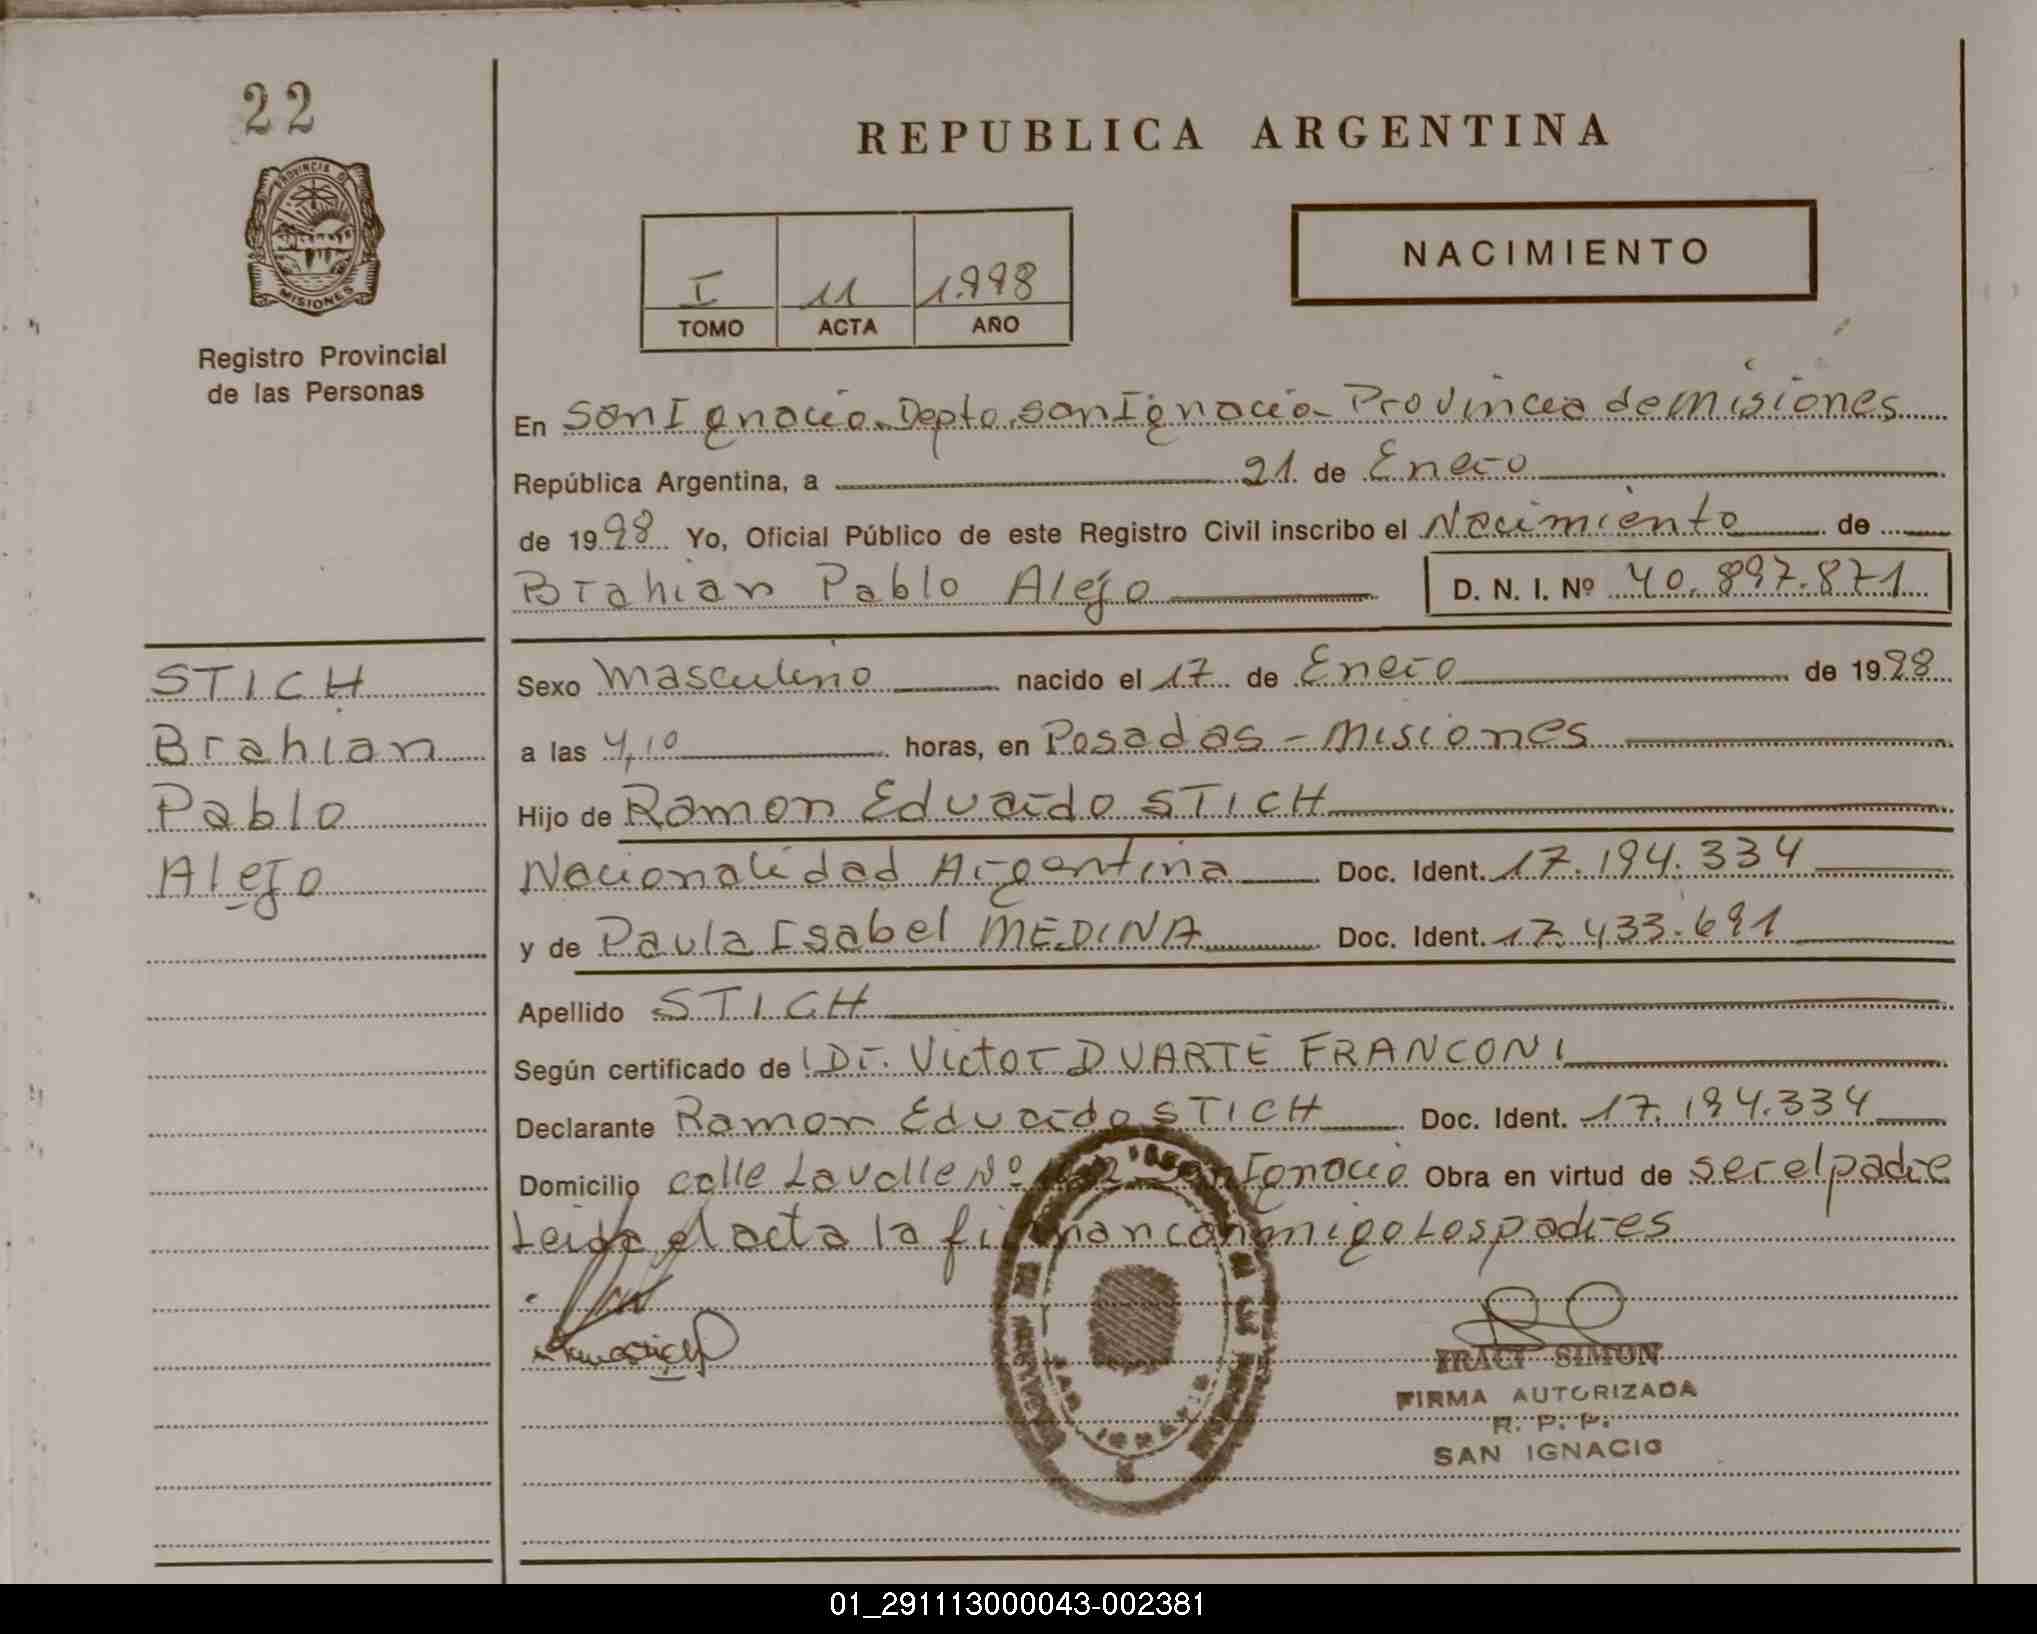 22
PROVINCIA D
MISIONES
Registro Provincial
de las Personas
REPUBLICA ARGENTINA
I 11 1.998
TOMO ACTA AÑO
NACIMIENTO
En San Ignacio. Depto. San Ignacio - Provincia de Misiones
República Argentina, a 21 de Enero
de 1998 Yo, Oficial Público de este Registro Civil inscribo el Nacimiento de
Brahian Pablo Alejo D. N. I. Nº 40.897.871
STICH
Brahian
Pablo
Alejo
Sexo Masculino nacido el 17 de Enero de 1998
a las 4,10 horas, en Posadas - Misiones
Hijo de Ramon Eduardo STICH
Nacionalidad Argentina Doc. Ident. 17.194.334
y de Paula Isabel MEDINA Doc. Ident. 17.433.691
Apellido STICH
Según certificado de Dr. Victor DUARTE FRANCONI
Declarante Ramon Eduardo STICH Doc. Ident. 17.194.334
Domicilio calle Lavalle Nº San Ignacio Obra en virtud de ser el padre
Leida el acta la firman conmigo Los padres
IRACI SIMON
FIRMA AUTORIZADA
R. P. P.
SAN IGNACIO
01_291113000043-002381